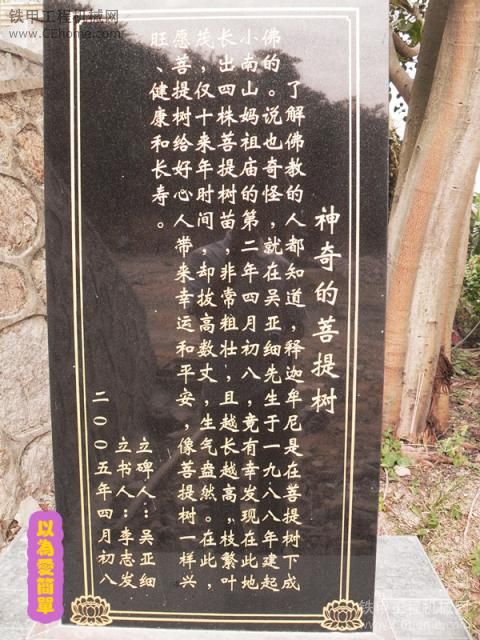 铁甲工程机械网
www.CEhome.com
神奇的菩提树
了解佛教的人都知道，释迦牟尼是在菩提树下成
佛的。说也奇怪，就在吴亚细先生于一九八八年建起
小南山妈祖庙的第二年四月初八，竟有幸发现在此地
长出四株菩提树苗，非常粗壮，且越长越高，枝繁叶
茂，仅十来年时间，却拔高数丈，生气盎然。在此，
愿菩提树给好心人带来幸运和平安，像菩提树一样兴
旺、健康和长寿。
立碑人：吴亚细
立书人：李志发
二〇〇五年四月初八
以為愛簡單
铁甲工程机械网
www.CEhome.com